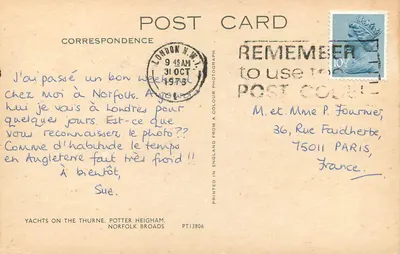 POST CARD
CORRESPONDENCE
LONDON N.W.1
9 45 AM
31 OCT
1976
REMEMBER
to use the
POST CODE
10P
J'ai passé un bon week-end
chez moi à Norfolk. Aujourd'
hui je vais à Londres pour
quelques jours. Est-ce que
vous reconnaissez le photo??
Comme d'habitude le temps
en Angleterre fait très froid!!
À bientôt,
Sue.
M. et Mme P. Fournier,
36, Rue Faidherbe,
75011 PARIS,
France.
PRINTED IN ENGLAND FROM A COLOUR PHOTOGRAPH
YACHTS ON THE THURNE, POTTER HEIGHAM,
NORFOLK BROADS
PT13806